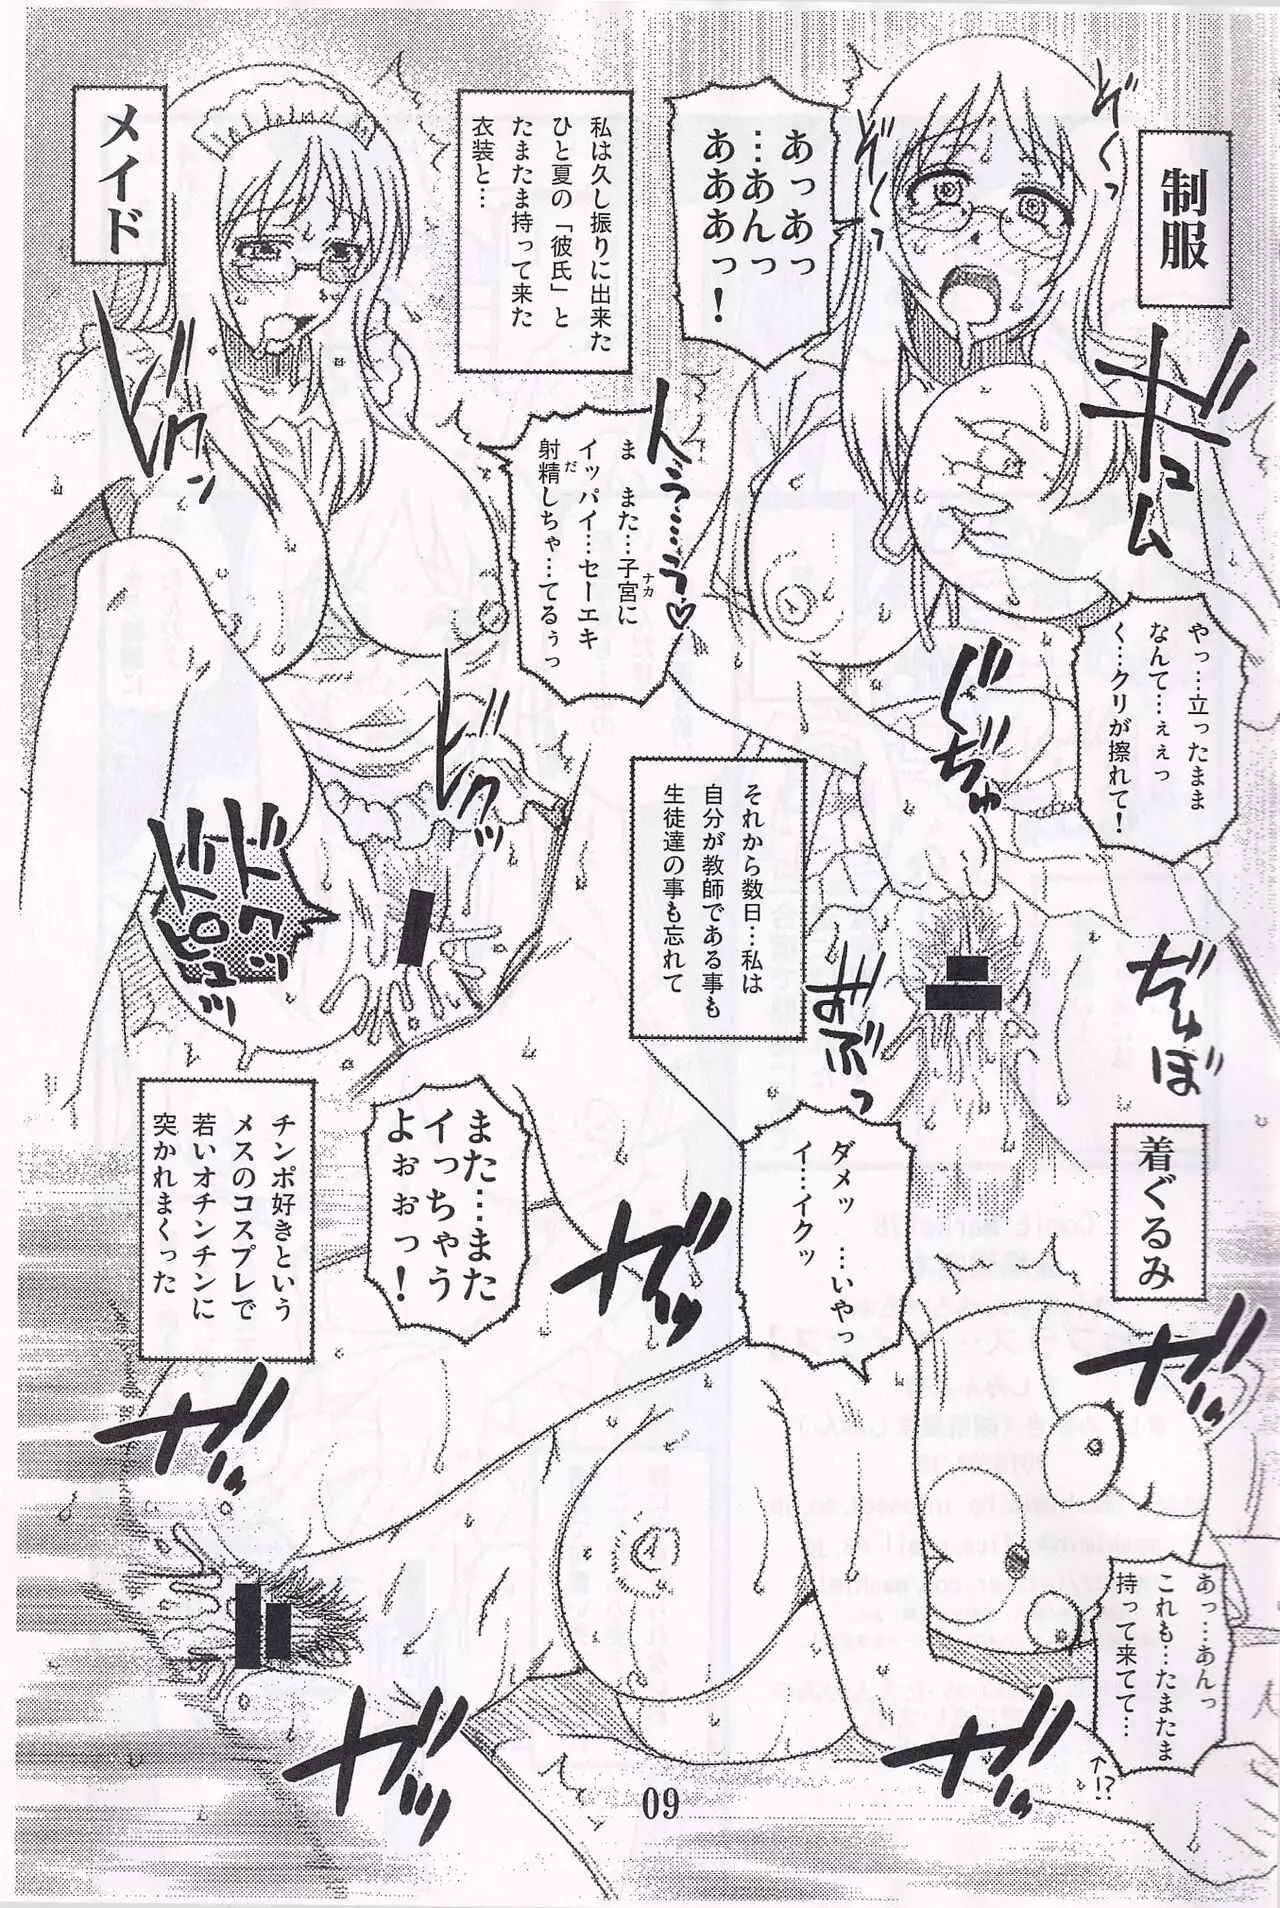 制服
ぞくっ
ぞくっ
あっあっ
…あんっ
あああっ！
私は久し振りに出来た
ひと夏の「彼氏」と
たまたま持って来た
衣装と…
メイド
ギュム
やっ…立ったまま
なんて…ぇぇっ
く…クリが擦れて！
んぅぅ……っ♡
ま　また…子宮に
ナカ
イッパイ…セーエキ
射精しちゃ…てるぅっ
だ
ドクン
ドクッ
ドクッ
ドピュッ
それから数日…私は
自分が教師である事も
生徒達の事も忘れて
ぢゅぼ
ぢゅ
チンポ好きという
メスのコスプレで
若いオチンチンに
突かれまくった
また…また
イっちゃう
よぉぉっ！
着ぐるみ
ダメッ　…いやっ
イ…イクッ
ガッ
ガッ
ガッ
ガッ
ガッ
あっ…あんっ
これも…たまたま
持って来てて…
↑!?
09